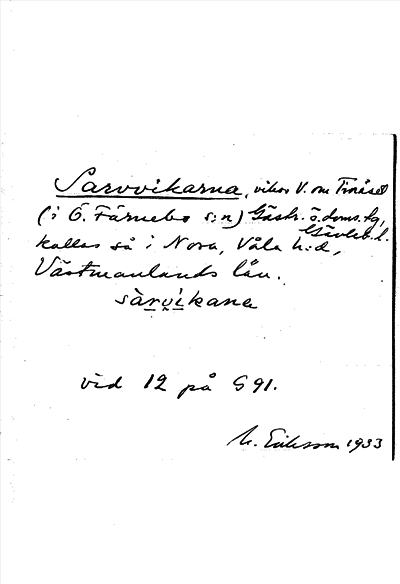 Sarvvikarna, vikar V. om Tinäset
(i Ö. Färnebo s:n) Gästr. ö. doms. tg,
Gävleb. l.
kallas så i Nora, Våla h:d,
Västmanlands län.
sàrvikana
vid 12 på G 91.
M. Eriksson 1933